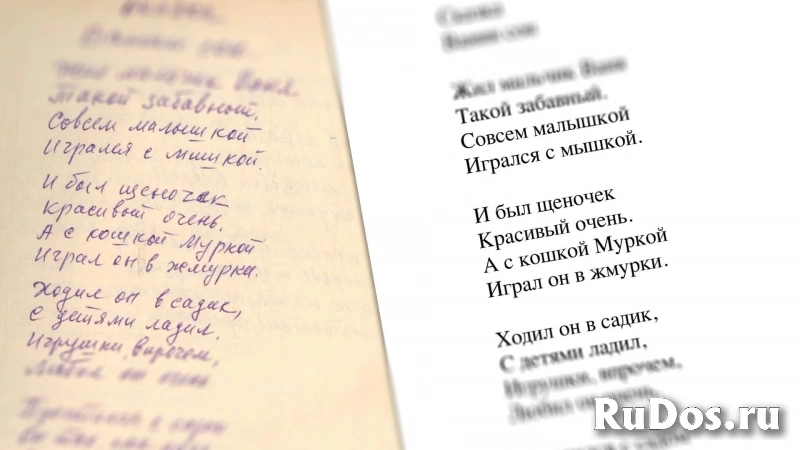 Жил мальчик Ваня
Такой забавный.
Совсем малышкой
Игрался с мишкой.
И был щеночек
Красивый очень.
А с кошкой Муркой
Играл он в жмурки.
Ходил он в садик,
С детями ладил.
Игрушки, впрочем,
Любил он очень.
Сказка
Ванин сон
Жил мальчик Ваня
Такой забавный.
Совсем малышкой
Игрался с мышкой.
И был щеночек
Красивый очень.
А с кошкой Муркой
Играл он в жмурки.
Ходил он в садик,
С детями ладил,
Игрушки, впрочем,
Любил он очень.
RuDos.ru